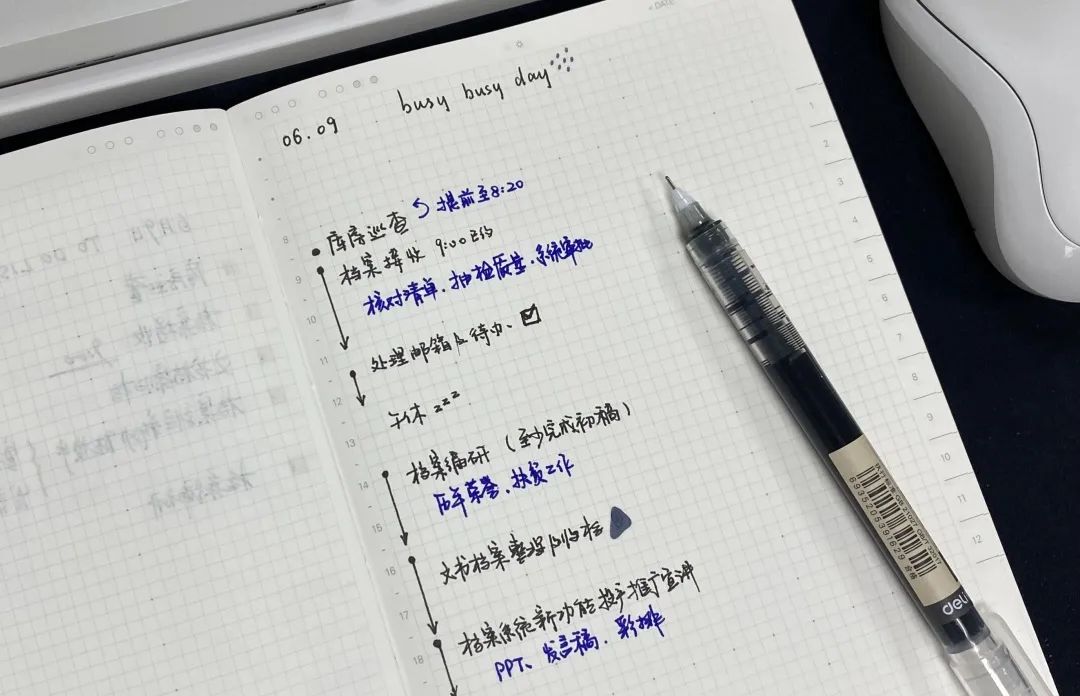 DATE
busy busy day
06.09
库房巡查 提前至8:20
档案接收 9:00已约
核对清单、抽检质量、系统审批
处理邮箱及待办、☑
午休 zzz
档案编研（至少完成初稿）
历年荣誉、扶贫工作
文书档案整理归档
档案系统新功能 推广宣讲
PPT、发言稿、彩排
8
9
10
11
12
13
14
15
16
17
18
1
2
3
4
5
6
7
8
9
10
11
12
deli